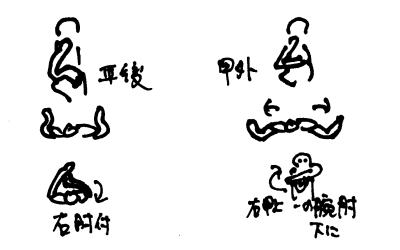 耳後
甲外
右肘付
右甲上一の腕肘
下に